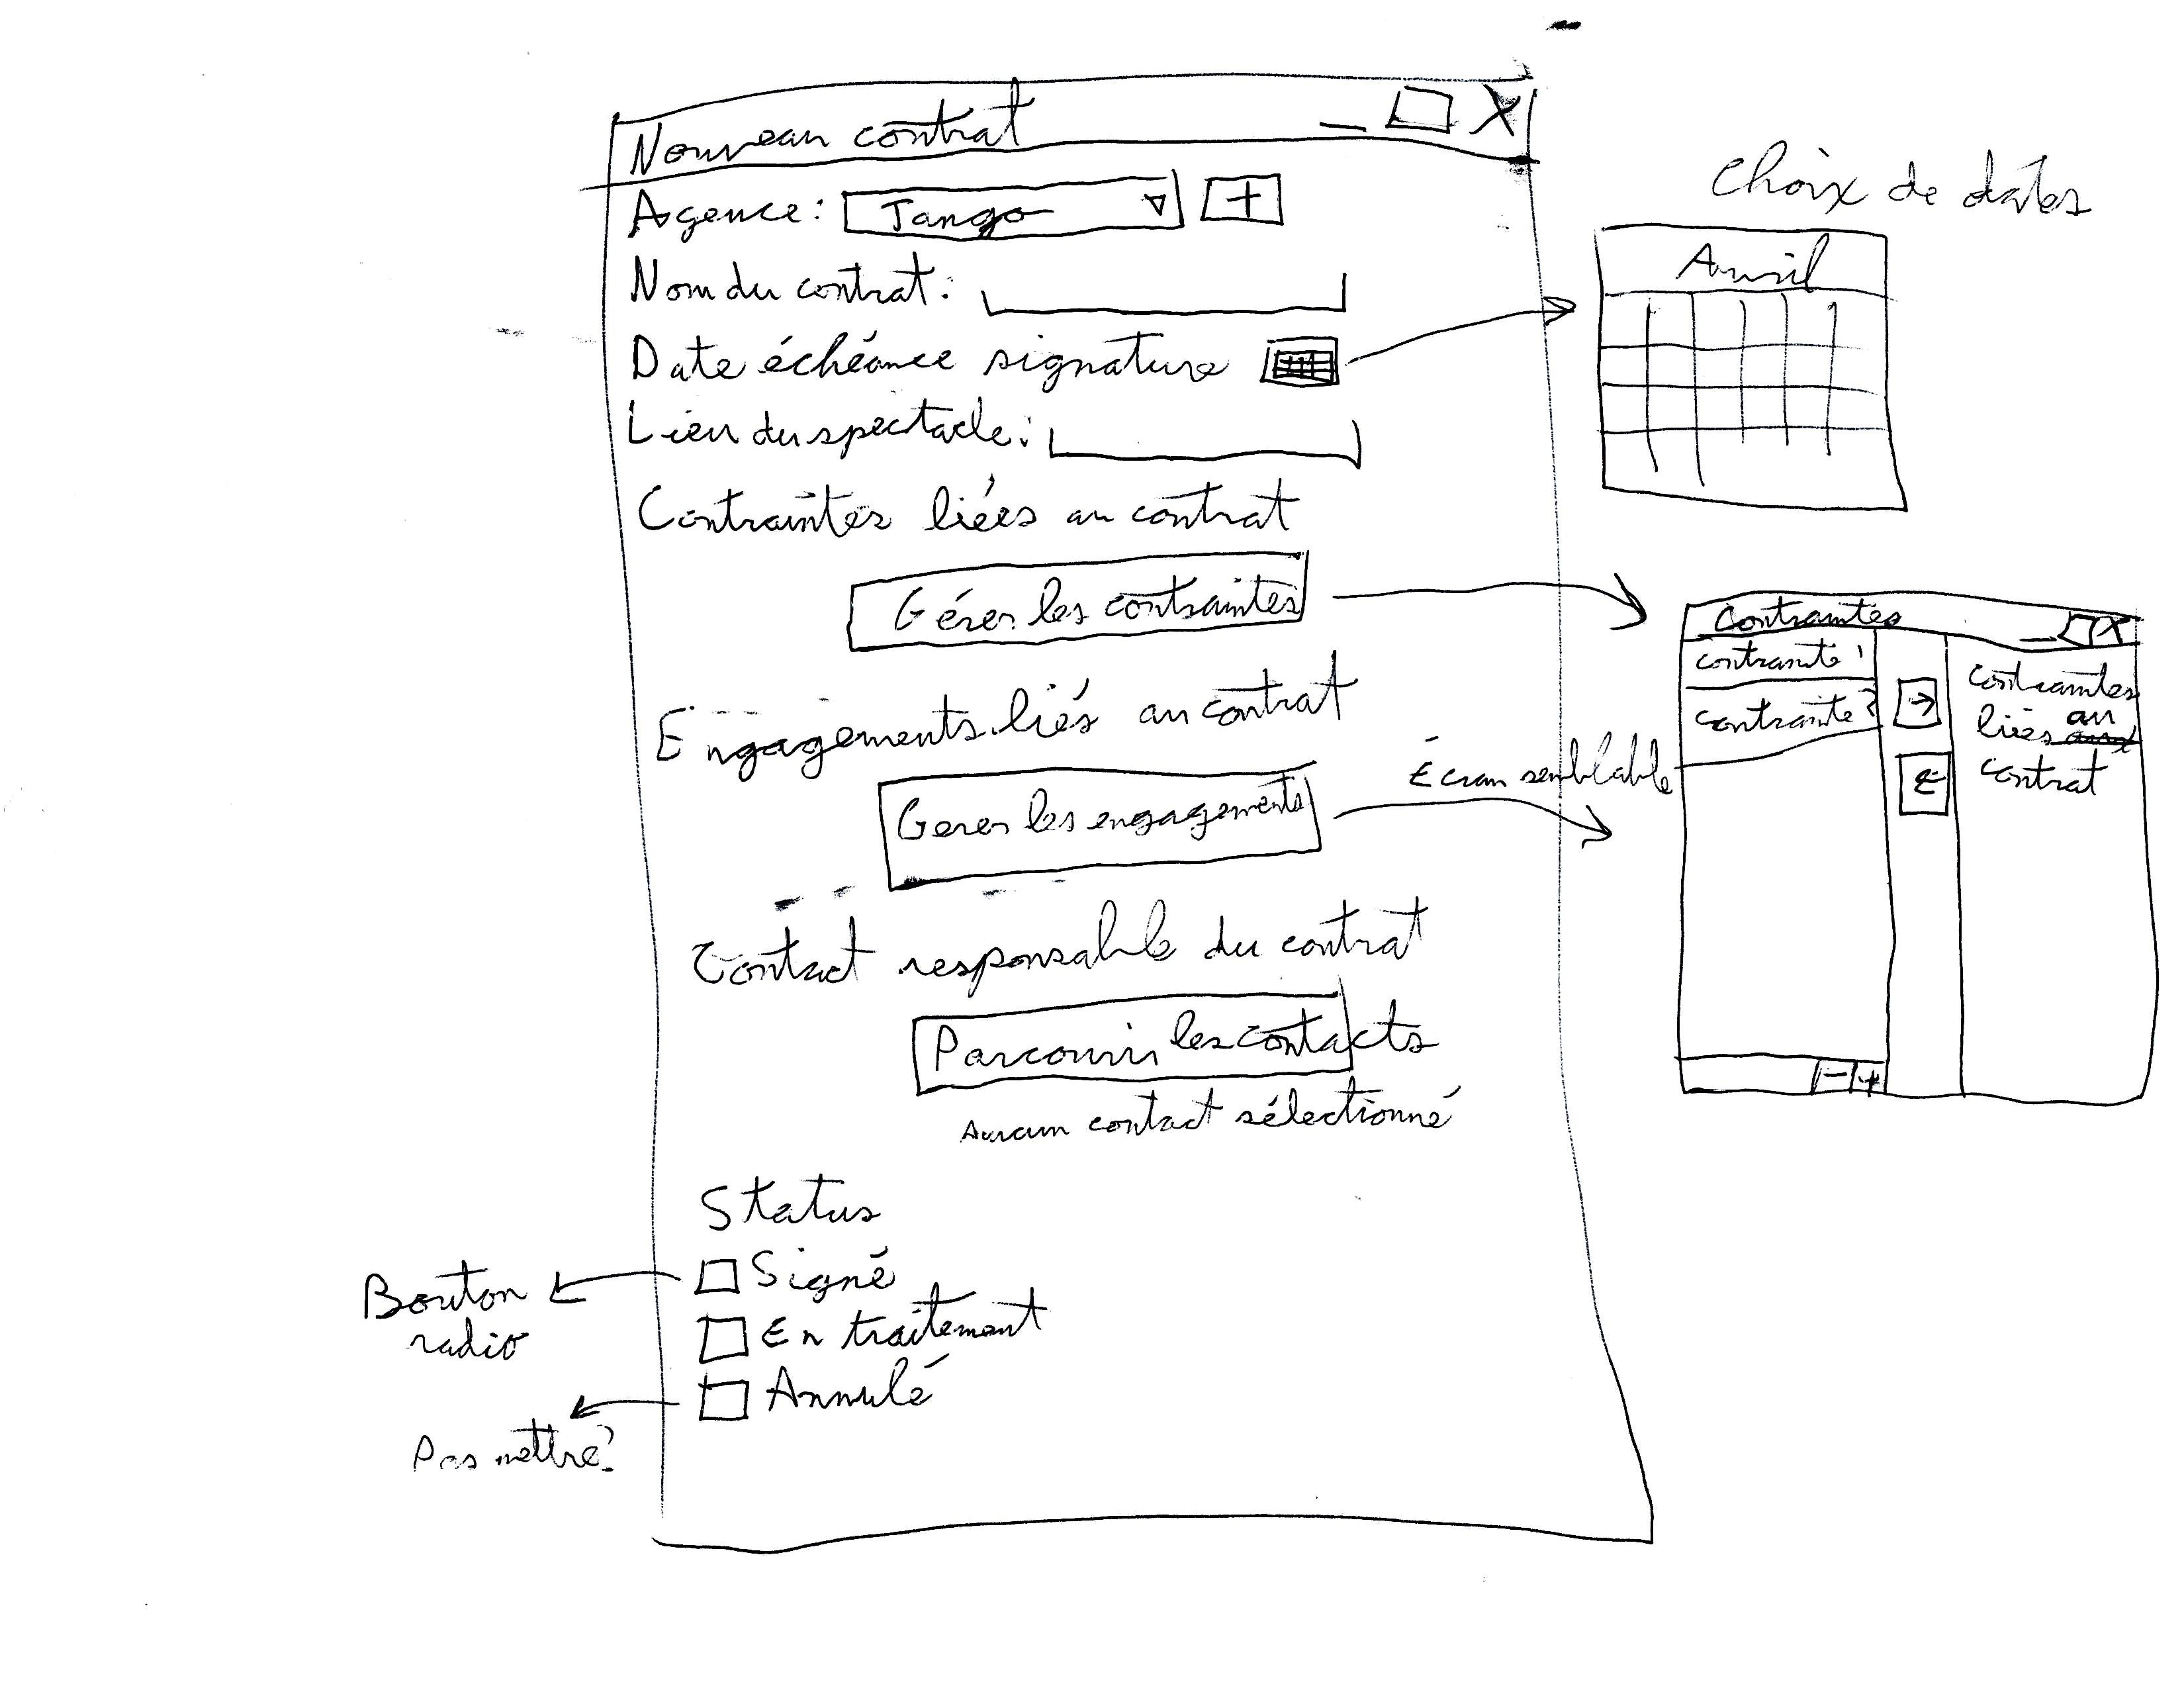 Nouveau contrat _ □ X
Agence: Tango ▽ +
Nom du contrat:
Date échéance signature
Lieu du spectacle:
Contraintes liées au contrat
Gérer les contraintes
Engagements liés au contrat
Gérer les engagements
Contact responsable du contrat
Parcourir les contacts
Aucun contact sélectionné
Status
Signé
En traitement
Annulé
Bouton
radio
Pas mettre?
Choix de dates
Avril
Écran semblable
Contraintes _ □ X
contrainte 1
contrainte 2
→
←
Contraintes
liées au
contrat
- +